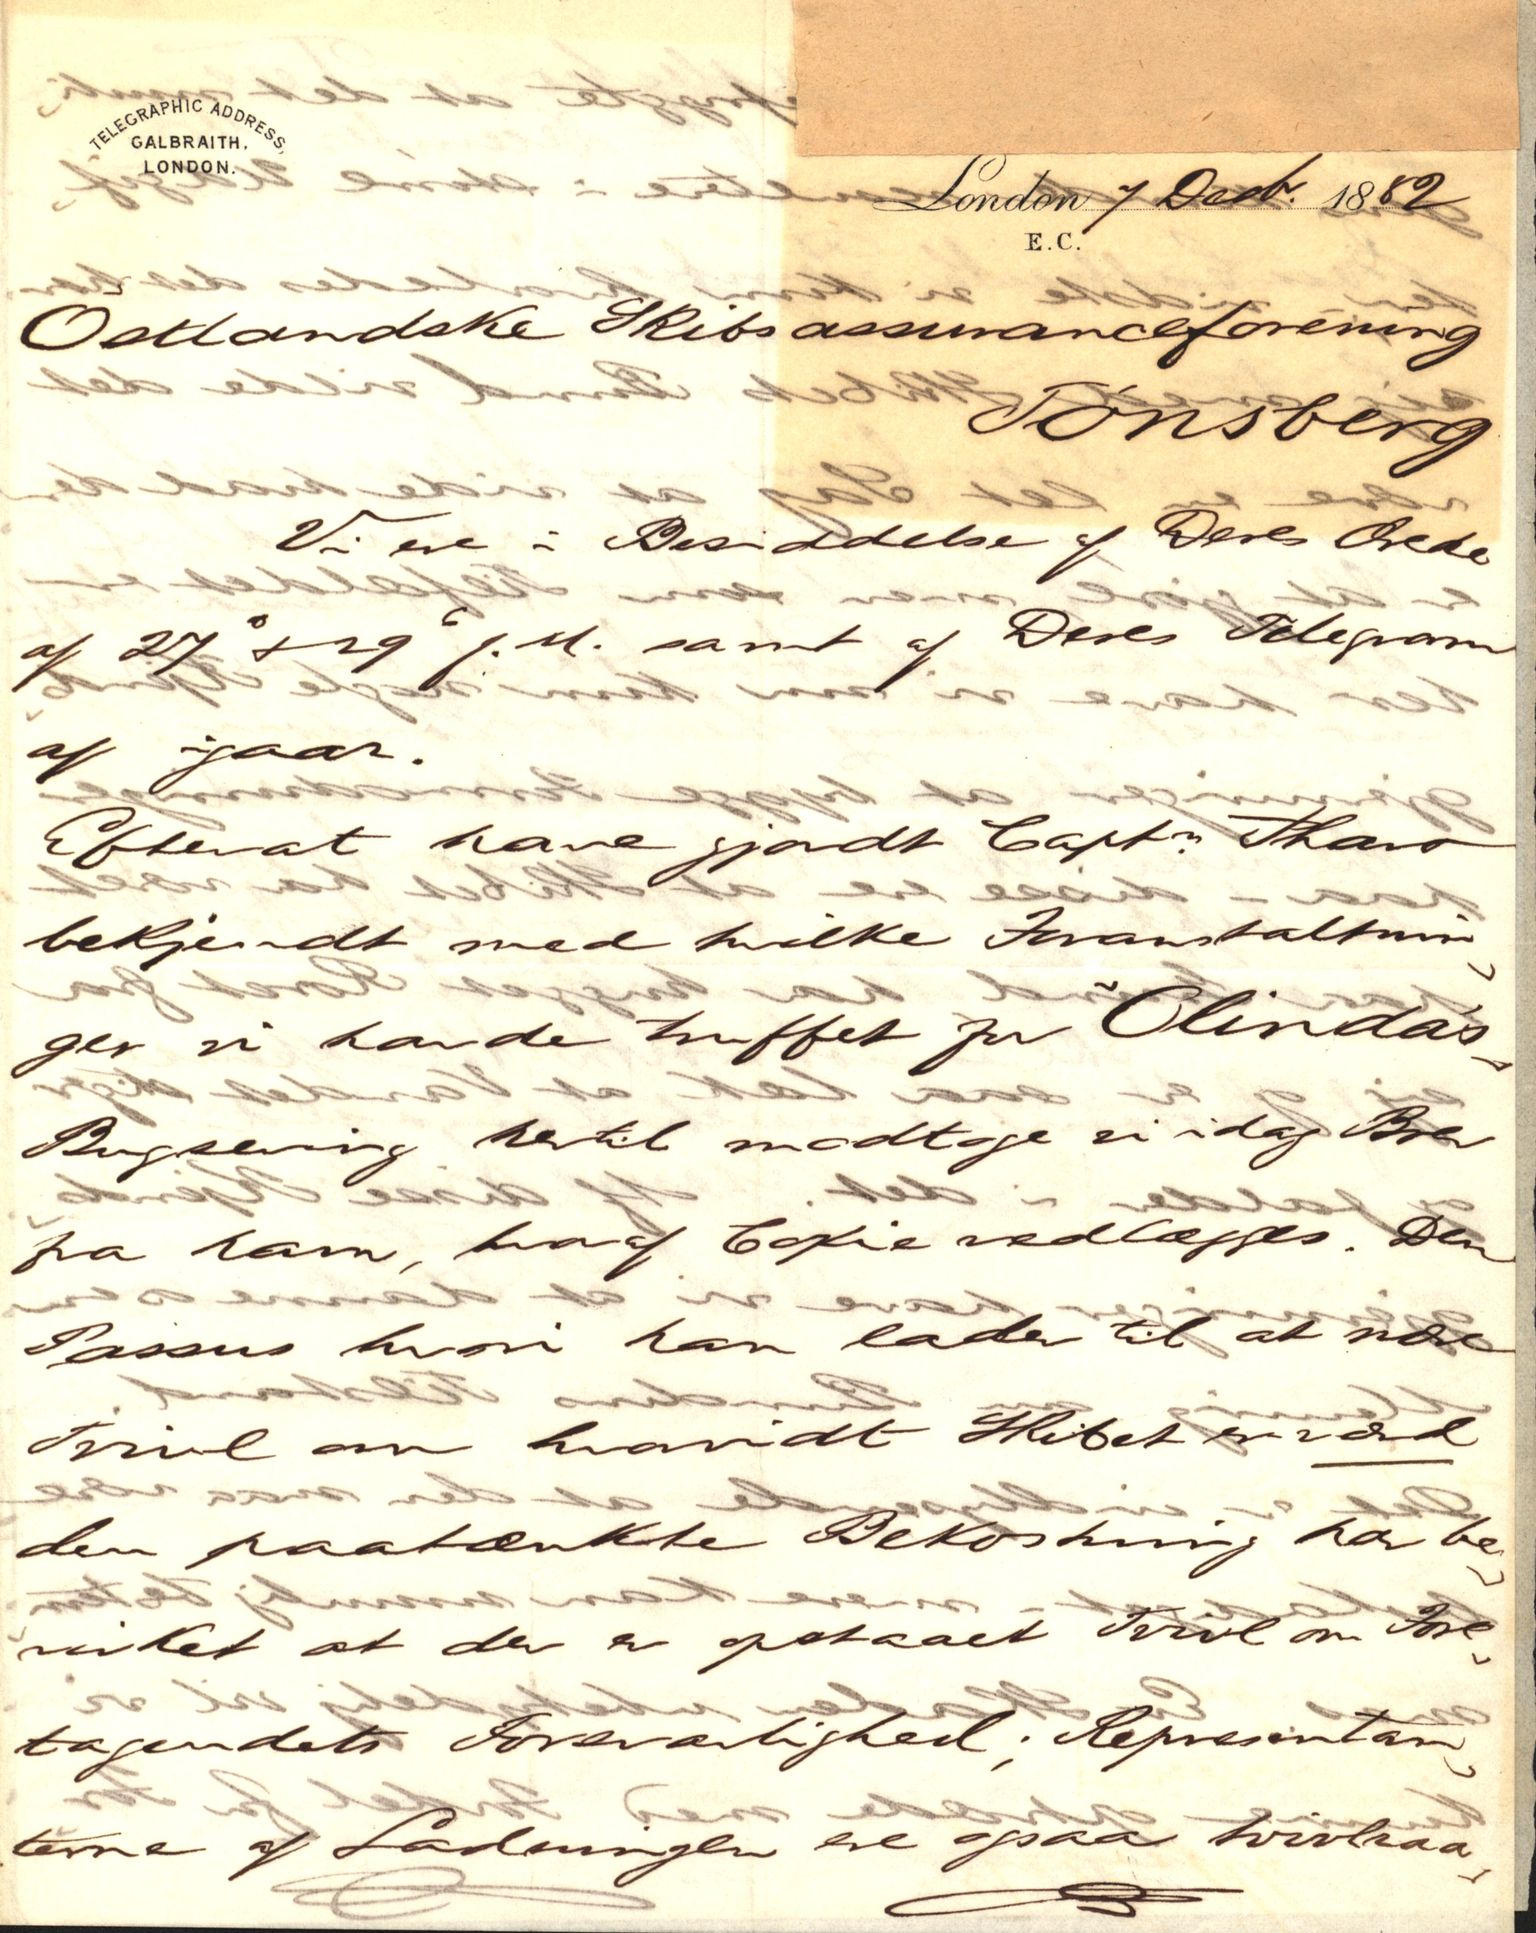 TELEGRAPHIC ADDRESS,
GALBRAITH.
LONDON.
London 7 Decbr. 1882
E.C.
Östlandske Skibsassuranceforening
Tönsberg
Vi ere i Besiddelse af Deres Ærede
af 27de & 29de f.M. samt af Deres Telegram
af igaar.
Efterat have gjordt Captn.
bekjendt med hvilke Foranstaltnin-
ger vi havde truffet for "Olinda's"
Bugsering hertil modtoge vi idag Brev
fra ham, hvoraf Copie vedlægges. Den
Passus hvori han lader til at være
Tvivl om hvorvidt Skibet er værd
den paatænkte Bekostning har be-
virket at der er opstaaet Tvivl om Fore-
tagendets Forsvarlighed; Representan-
terne af Ladningen ere ogsaa tvivlraa-